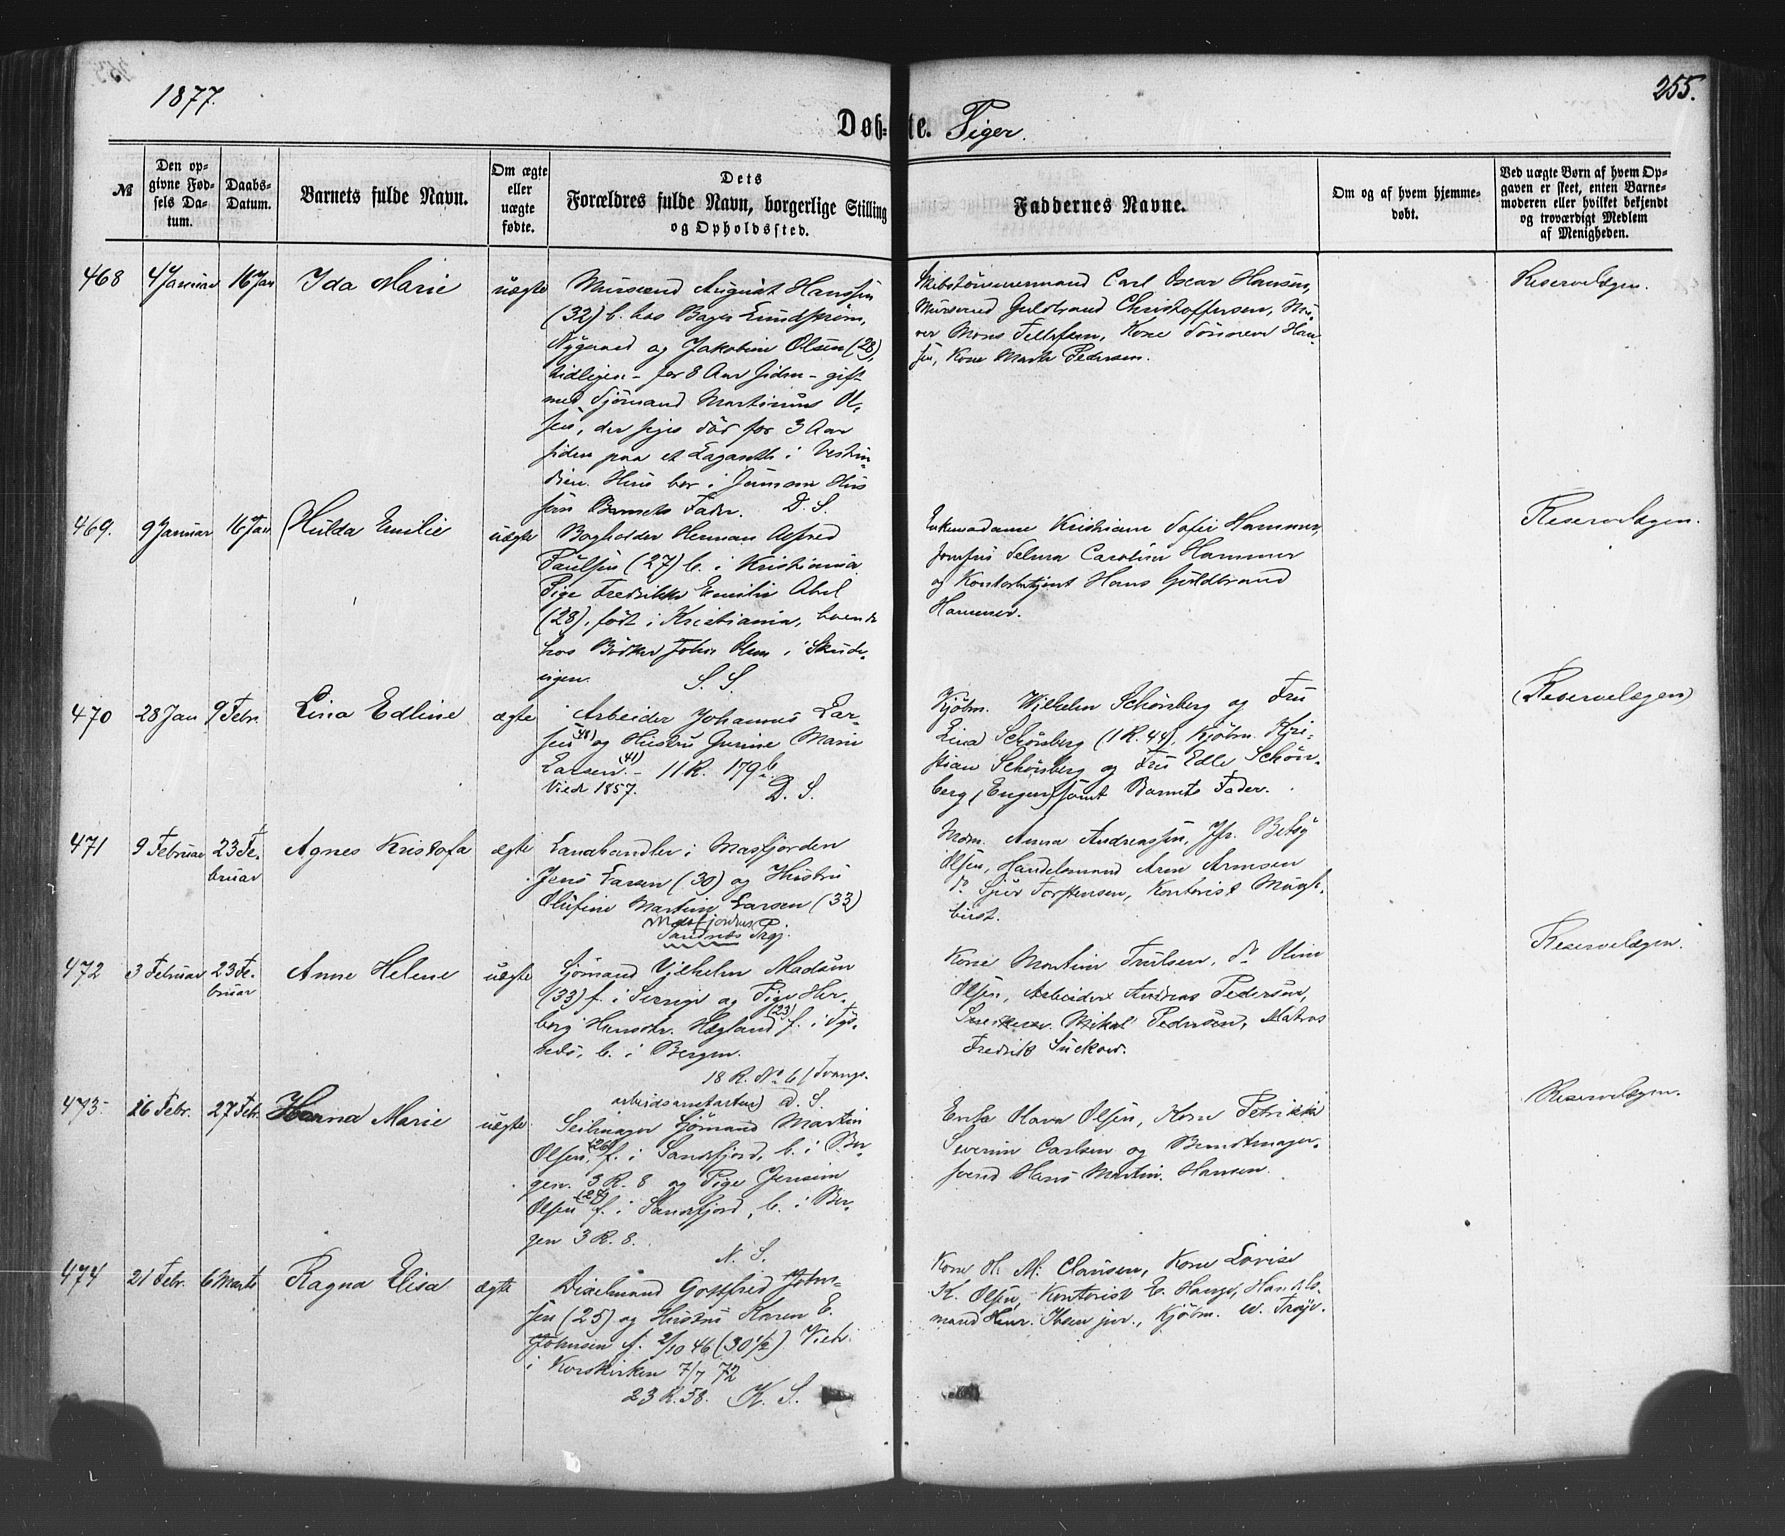 1877.
255.
Døb= te. Piger.
№
Den op-
givne Fød-
sels Da-
tum.
Daabs-
Datum.
Barnets fulde Navn.
Om ægte
eller
uægte
fødte.
Dets
Forældres fulde Navn, borgerlige Stilling
og Opholdssted.
Faddernes Navne.
Om og af hvem hjemme-
døbt.
Ved uægte Børn af hvem Op-
gaven er skeet, enten Barne-
moderen eller hvilket bekjendt
og troværdigt Medlem
af Menigheden.
468 4 Januar 16 Jan Ida Marie uægte
Mursvend August Hanssen
(32) b. hos Bager Lindstrøm,
Nygaard og Jakobine Olsen (28),
tidligere - for 8 Aar siden - gift
med Sjømand Martinus Ol-
sen, der siges død for 3 Aar
siden paa et Lazareth i Vestin-
dien. Hun bor i Hus
Barnets Fader. D. S.
Skibstømmermand Carl Oscar Hansen,
Mursvend Guldbrand Christoffersen, Mu-
rer Mons Tellefsen, Kone Han-
sen, Kone Marte Pedersen.
Reservelægen.
469. 9 Januar 16 Jan Hulda Emilie uægte
Bogholder Herman Alfred
Paulsen (27) b. i Kristiania
Pige Fredrikke Emilie Abel
(28), født i Kristiania, boende
hos Bødker Johan i Skude-
vigen. S. S.
Enkemadame Kristiane Sofie Hammer,
Jomfru Selma Caroline Hammer
og Kontorbetjent Hans Guldbrand
Hammer.
Reservelægen.
470 28 Jan 9 Febr. Lina Edline ægte
Arbeider Johannes Lar-
sen og Hustru Gurine Marie
Larsen (41) - 11 R. 179 b
Viede 1857. D. S.
Kjøbm. Wilhelm Schønberg og Fru
Lina Schønberg (1 R. 44), Kjøbm. Kri-
stian Schønberg og Fru Edle Schøn-
berg, (Engen) samt Barnets Fader.
(Reservelægen)
471 9 Februar 23 Fe-
bruar Agnes Kristofa ægte
Landhandler i Masfjorden
Jens Larsen (30) og Hustru
Olufine Martine Larsen (33)
Masfjorden
Sandnes Prgj.
Mdm. Anna Andreassen, Jfr. Betsy
Olsen, Handelsmand Arne Arnesen
do Sjur Torstensen, Kontorist
472 3 Februar 23 Fe-
bruar Anne Helene uægte
Sjømand Vilhelm Madsen
(33) f. i Sverige og Pige Her-
borg Hansdr. Hægland (23) f. i Tys-
nes, b. i Bergen.
18 R. No 6 (Tvangs-
arbeidsanstalten) D. S.
Kone Martine Truelsen, do Oline
Olsen, Arbeider Andreas Pedersen,
Snedker Mikal Pedersen, Matros
Fredrik Suckow.
Reservelægen.
473 26 Febr. 27 Febr. Hanna Marie uægte
Seilmager Sjømand Martin
Olsen (26), f. i Sandefjord, b. i Ber-
gen. 3 R. 8 og Pige Jensine
Olsen (27) f. i Sandefjord, b. i Ber-
gen 3 R. 8. N. S.
Enke Olava Olsen, Kone Petrikke
Severine Carlsen og Bundtmager-
svend Hans Martin Hansen.
Reservelægen.
474 21 Febr. 6 Marts Ragna Elisa ægte
Diselmand Gottfred John-
sen (25) og Hustru Karen E.
Johnsen f. 2/10 46 (30 1/2) Viet
i Korskirken 7/7 72
23 R. 58. K. S.
Kone H. M. Clausen, Kone Lovise
K. Olsen, Kontorist E. Hauge, Handels-
mand Henr. Ibsen jur., Kjøbm. W. Trøje.